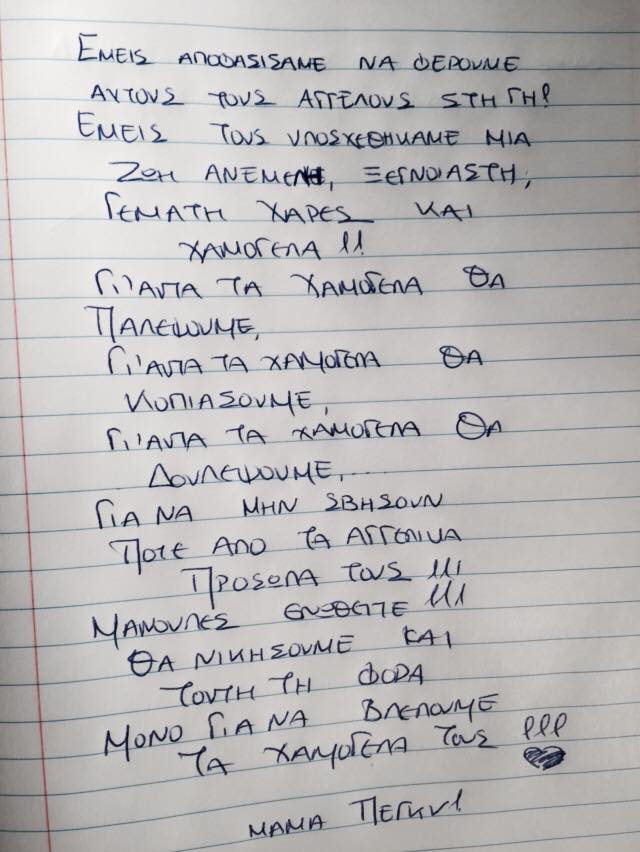 ΕΜΕΙΣ ΑΠΟΦΑΣΙΣΑΜΕ ΝΑ ΦΕΡΟΥΜΕ
ΑΥΤΟΥΣ ΤΟΥΣ ΑΓΓΕΛΟΥΣ ΣΤΗ ΓΗ!
ΕΜΕΙΣ ΤΟΥΣ ΥΠΟΣΧΕΘΗΚΑΜΕ ΜΙΑ
ΖΩΗ ΑΝΕΜΕΛΗ, ΞΕΓΝΟΙΑΣΤΗ,
ΓΕΜΑΤΗ ΧΑΡΕΣ ΚΑΙ
ΧΑΜΟΓΕΛΑ!!
ΓΙ'ΑΥΤΑ ΤΑ ΧΑΜΟΓΕΛΑ ΘΑ
ΠΑΛΕΨΟΥΜΕ,
ΓΙ'ΑΥΤΑ ΤΑ ΧΑΜΟΓΕΛΑ ΘΑ
ΚΟΠΙΑΣΟΥΜΕ,
ΓΙ'ΑΥΤΑ ΤΑ ΧΑΜΟΓΕΛΑ ΘΑ
ΔΟΥΛΕΨΟΥΜΕ,...
ΓΙΑ ΝΑ ΜΗΝ ΣΒΗΣΟΥΝ
ΠΟΤΕ ΑΠΟ ΤΑ ΑΓΓΕΛΙΚΑ
ΠΡΟΣΩΠΑ ΤΟΥΣ!!!
ΜΑΝΟΥΛΕΣ !!!
ΘΑ ΝΙΚΗΣΟΥΜΕ ΚΑΙ
ΤΟΥΤΗ ΤΗ ΦΟΡΑ
ΜΟΝΟ ΓΙΑ ΝΑ ΒΛΕΠΟΥΜΕ
ΤΑ ΧΑΜΟΓΕΛΑ ΤΟΥΣ!!!
ΜΑΜΑ ΠΕΓΚΥ!